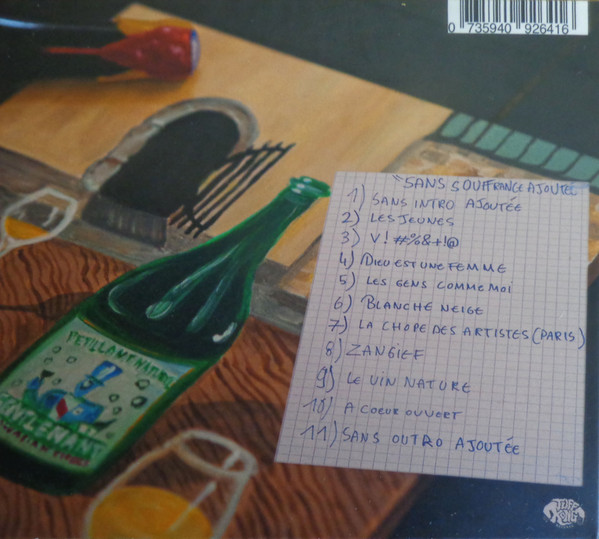 0 735940 926416
"SANS SOUFFRANCE AJOUTÉE
1) SANS INTRO AJOUTÉE
2) LES JEUNES
3) V ! #%&+!@
4) DIEU EST UNE FEMME
5) LES GENS COMME MOI
6) BLANCHE NEIGE
7) LA CHOPE DES ARTISTES (PARIS)
8) ZANGIEF
9) LE VIN NATURE
10) A COEUR OUVERT
11) SANS OUTRO AJOUTÉE
PETILLANT NATUREL
GENTLEMANT
JEFF
KONG